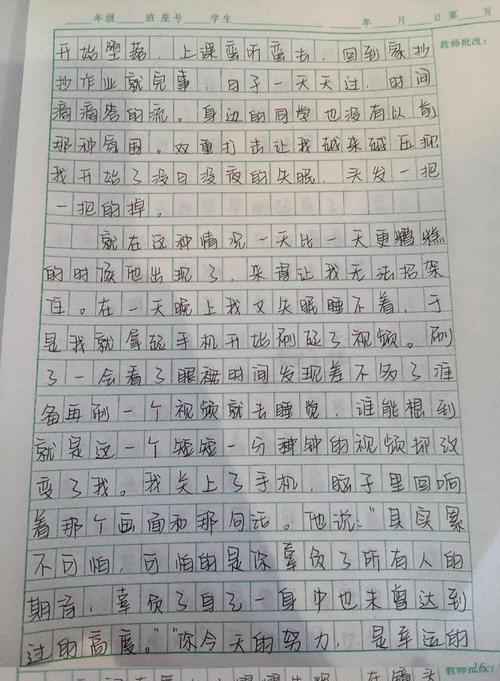 年级 班 座号 学生 年 月 日 第 页
教师批改：
开始堕落 上课蛮听蛮去，回到家抄
抄作业就完事，日子一天天过，时间
滴滴答的流。身边的同学也没有以前
那种氛围。双重打击让我越来越压抑
我开始了没日没夜的失眠，头发一把
一把的掉。
就在这种情况一天比一天更糟糕
的时候他出现了，来得让我无法招架
在一天晚上我又失眠睡不着，于
是我就拿起手机开始刷起了视频。刷
了一会看了眼被时间发现差不多了准
备再刷一个视频就去睡觉，谁能想到
就是这一个短短一分钟的视频却改
变了我。我关上了手机，脑子里回响
着那个画面和那句话。他说："其实累
不可怕，可怕的是你辜负了所有人的
期音，辜负了自己一身中也未曾达到
过的高度。""你今天的努力，是幸运的
教师批改：